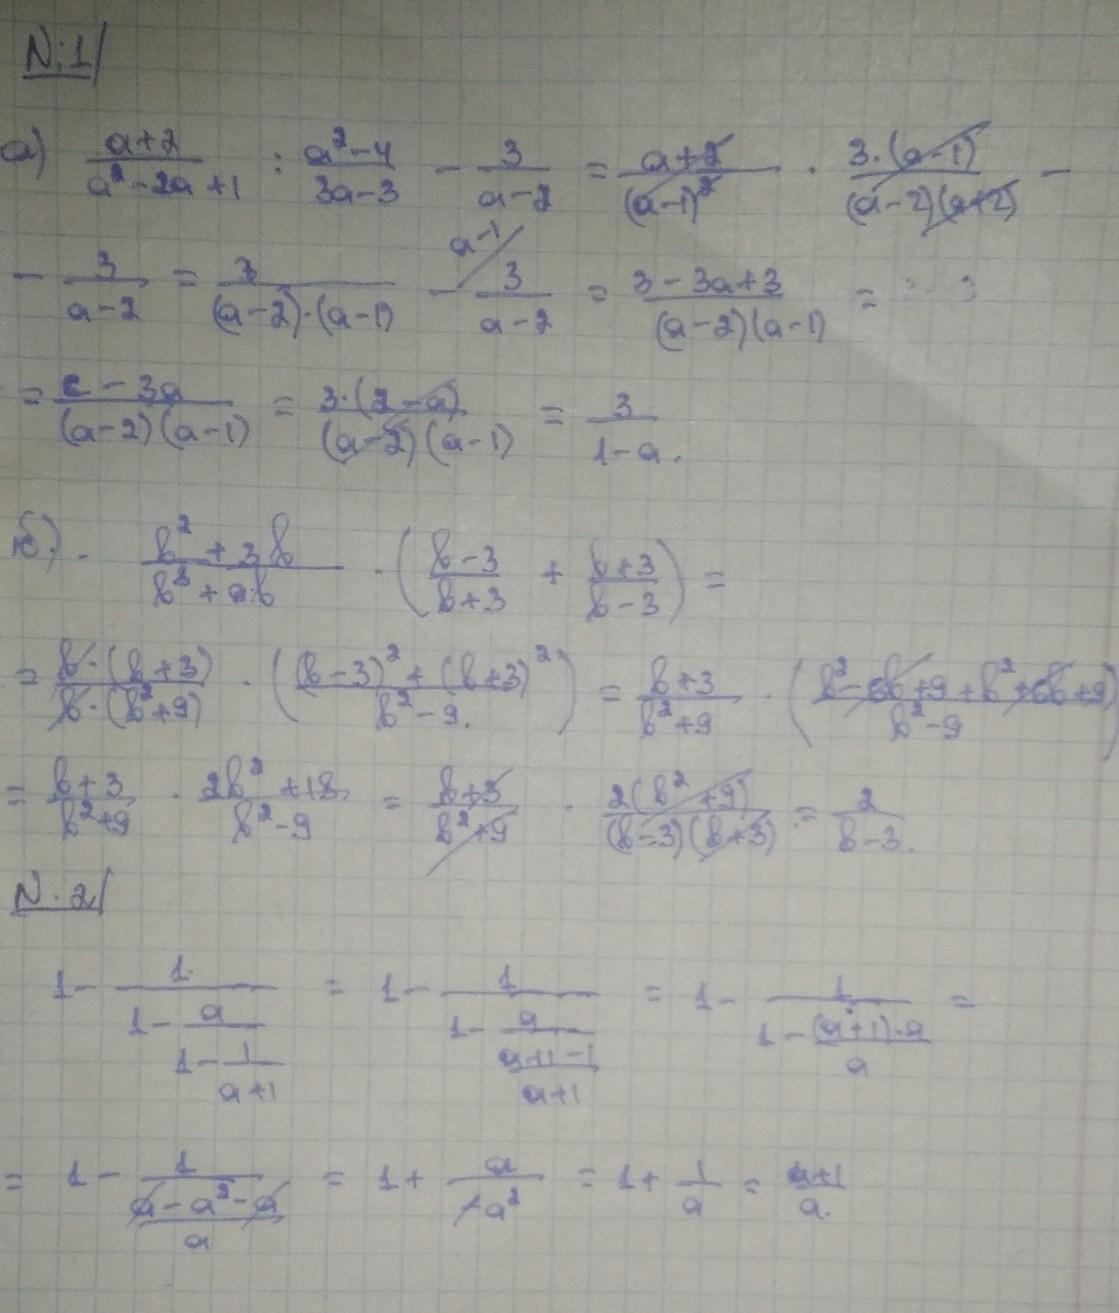 N.1
а) (a+2)/(a²-2a+1) : (a²-4)/(3a-3) - 3/(a-2) = (a+2)/(a-1)² · 3·(a-1)/((a-2)(a+2)) -
- 3/(a-2) = 3/((a-2)·(a-1)) - a-1/ 3/(a-2) = (3-3a+3)/((a-2)(a-1)) =
= (6-3a)/((a-2)(a-1)) = 3·(2-a)/((a-2)(a-1)) = 3/(1-a).
б). (b²+3b)/(b³+9b) · ((b-3)/(b+3) + (b+3)/(b-3)) =
= b·(b+3)/(b·(b²+9)) · (((b-3)²+(b+3)²)/(b²-9)) = (b+3)/(b²+9) · ((b²-6b+9+b²+6b+9)/(b²-9))
= (b+3)/(b²+9) · (2b²+18)/(b²-9) = (b+3)/(b²+9) · 2(b²+9)/((b-3)(b+3)) = 2/(b-3).
N.2
1 - 1/(1 - a/(1 - 1/(a+1))) = 1 - 1/(1 - a/((a+1-1)/(a+1))) = 1 - 1/(1 - (a+1)·a/a) =
= 1 - 1/((a-a²-a)/a) = 1 + a/-a² = 1 + 1/a = (a+1)/a.